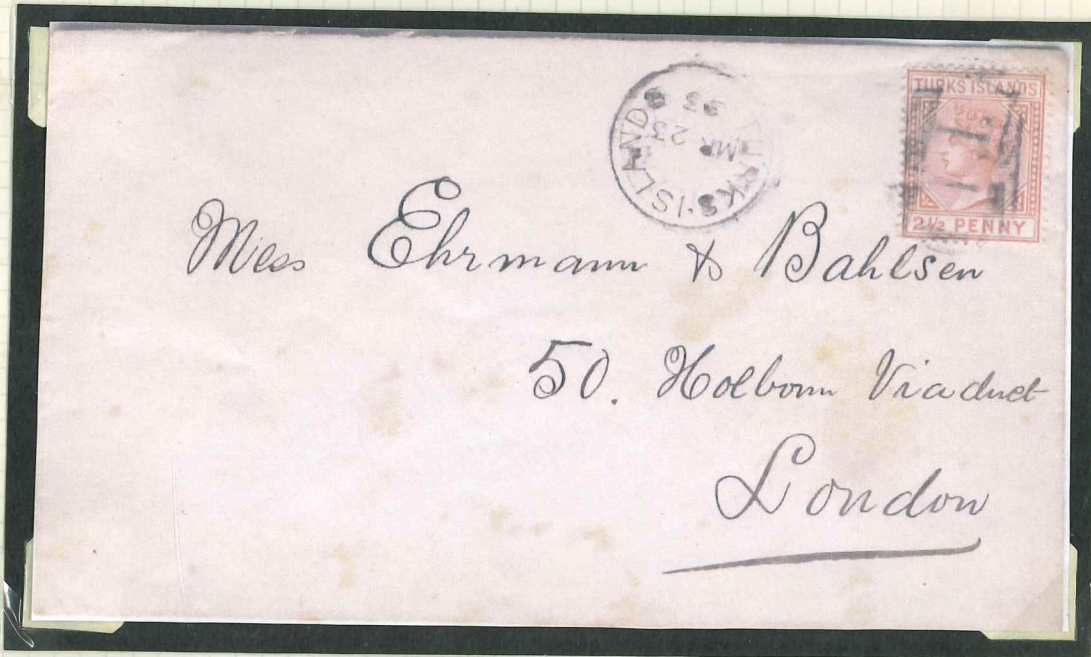 TURKS ISLANDS
2½ PENNY
TURKS·ISLANDS
MR 23
93
Mess Ehrmann & Bahlsen
50. Holborn Viaduct
London